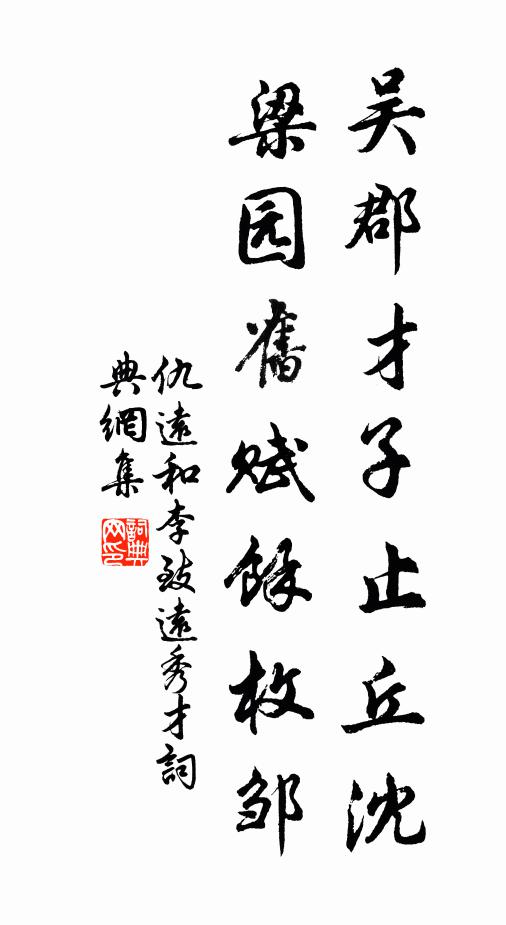 吴郡才子止丘沈
梁园舊赋餘枚邹
仇遠和李致遠秀才詞
典網集
詞典网印